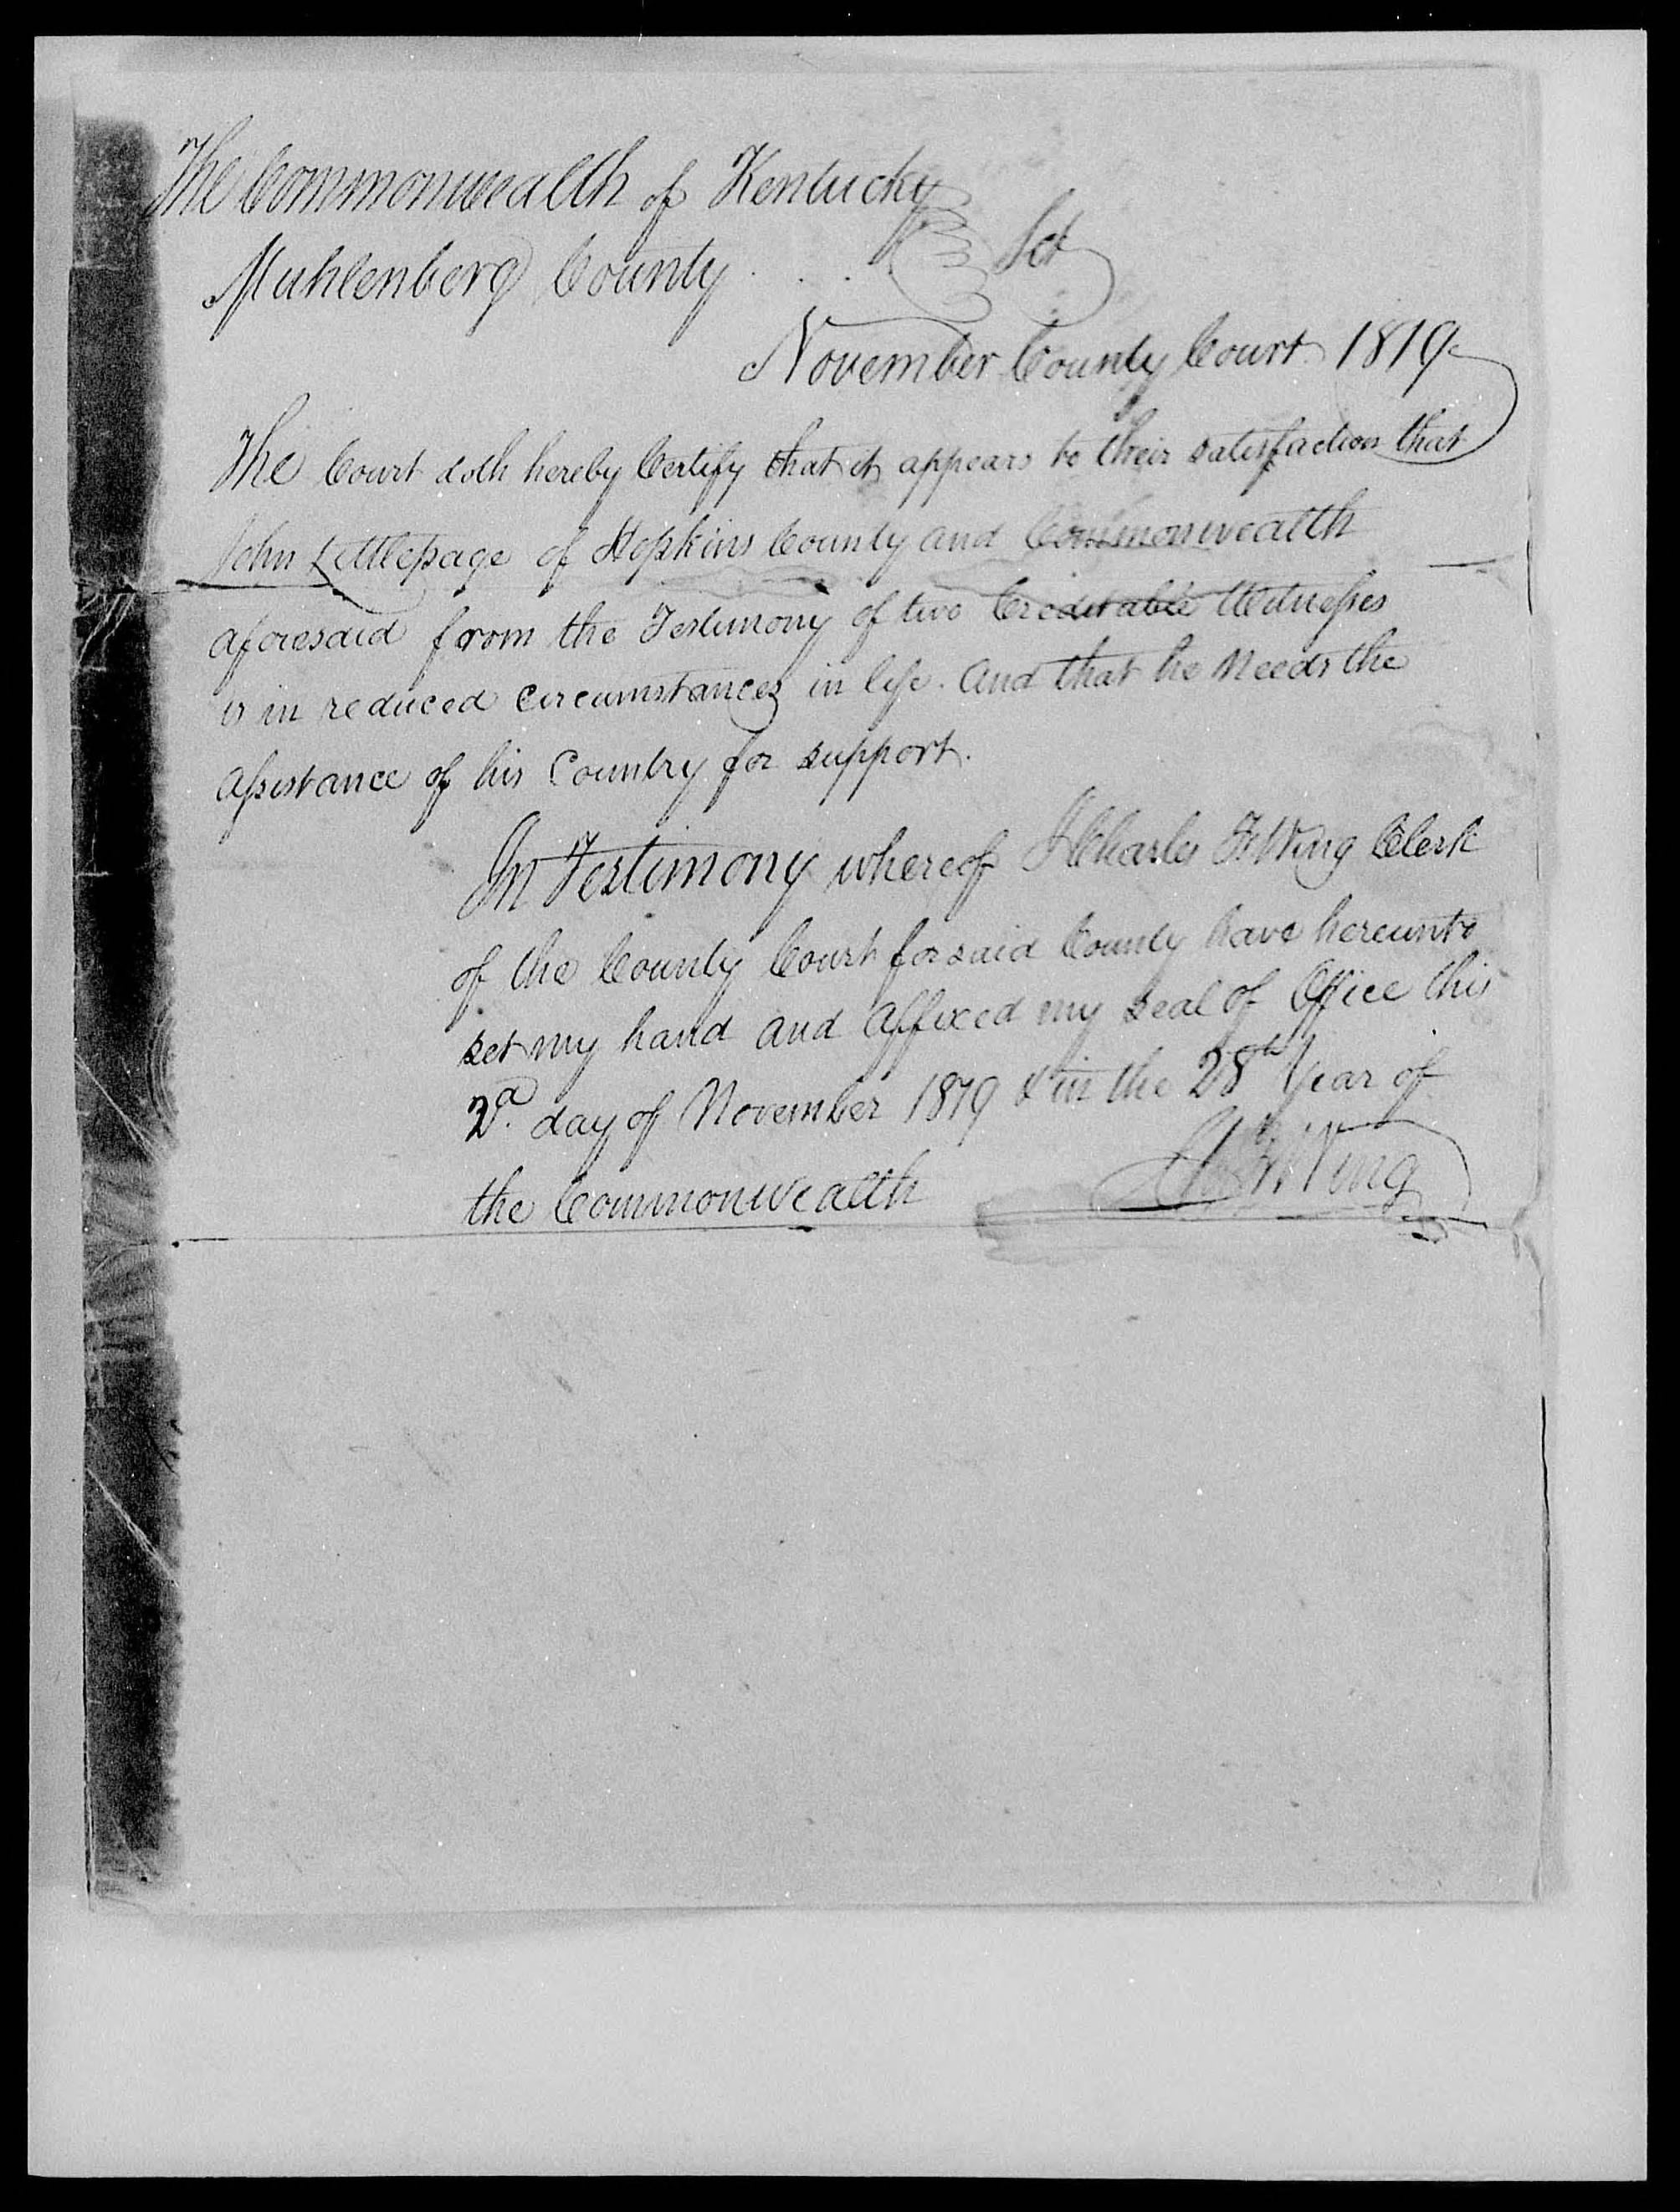 The Commonwealth of Kentucky
Muhlenberg County . . . Sct
November County Court 1819
The Court doth hereby Certify that it appears to their satisfaction that
John Littlepage of Hopkins County and Commonwealth
aforesaid from the Testimony of two Creditable Witnesses
is in reduced circumstances in life. and that he Needs the
Assistance of his Country for support.
In Testimony whereof I Charles F Wing Clerk
of the County Court for said County have hereunto
set my hand and affixed my seal of Office this
2d. day of November 1819 & in the 28th Year of
the Commonwealth
Ch F Wing